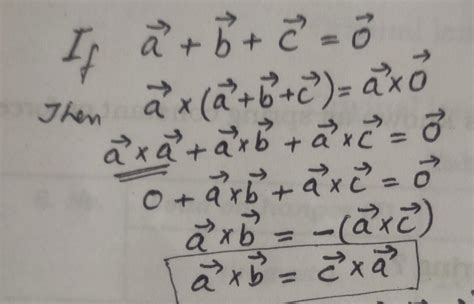 If a⃗ + b⃗ + c⃗ = 0⃗
Then a⃗ × (a⃗ + b⃗ + c⃗) = a⃗ × 0⃗
a⃗ × a⃗ + a⃗ × b⃗ + a⃗ × c⃗ = 0⃗
0 + a⃗ × b⃗ + a⃗ × c⃗ = 0⃗
a⃗ × b⃗ = -(a⃗ × c⃗)
a⃗ × b⃗ = c⃗ × a⃗